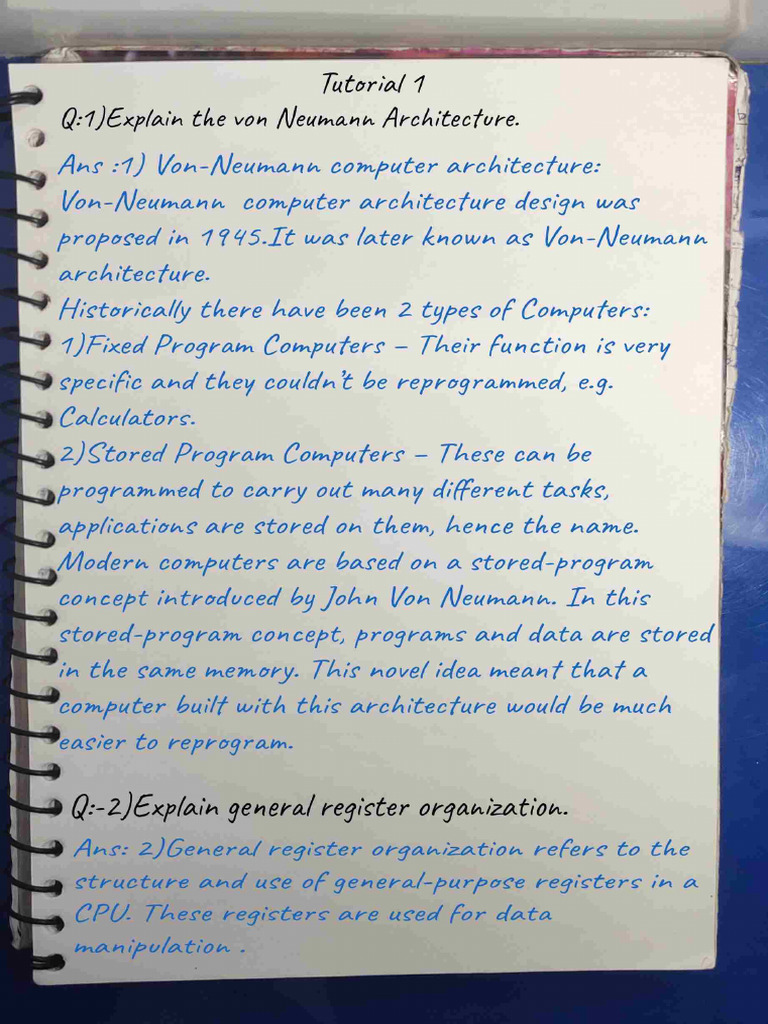 Tutorial 1
Q:1)Explain the von Neumann Architecture.
Ans :1) Von-Neumann computer architecture:
Von-Neumann computer architecture design was
proposed in 1945.It was later known as Von-Neumann
architecture.
Historically there have been 2 types of Computers:
1)Fixed Program Computers – Their function is very
specific and they couldn't be reprogrammed, e.g.
Calculators.
2)Stored Program Computers – These can be
programmed to carry out many different tasks,
applications are stored on them, hence the name.
Modern computers are based on a stored-program
concept introduced by John Von Neumann. In this
stored-program concept, programs and data are stored
in the same memory. This novel idea meant that a
computer built with this architecture would be much
easier to reprogram.
Q:-2)Explain general register organization.
Ans: 2)General register organization refers to the
structure and use of general-purpose registers in a
CPU. These registers are used for data
manipulation .